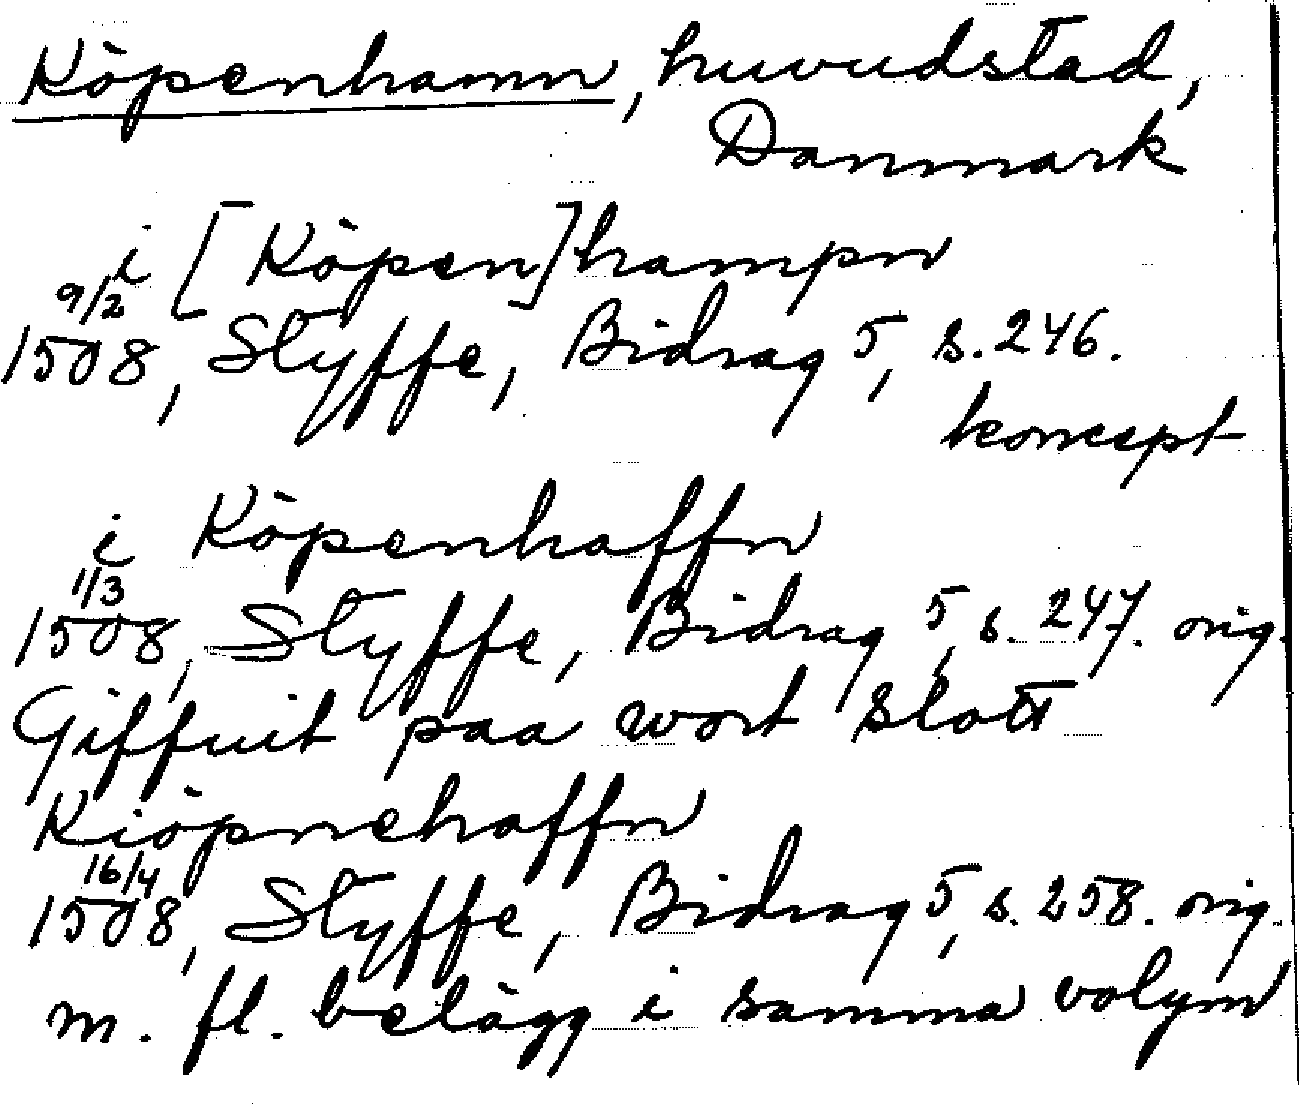 Köpenhamn, huvudstad,
Danmark
i [Köpen]hampn
9/2
1508, Styffe, Bidrag 5, s. 246.
koncept
i Köpenhaffn
1/3
1508, Styffe, Bidrag 5, s. 247. orig.
Giffuit paa wort slott
Kiöpnehaffn
16/4
1508, Styffe, Bidrag 5, s. 258. orig.
m. fl. belägg i samma volym